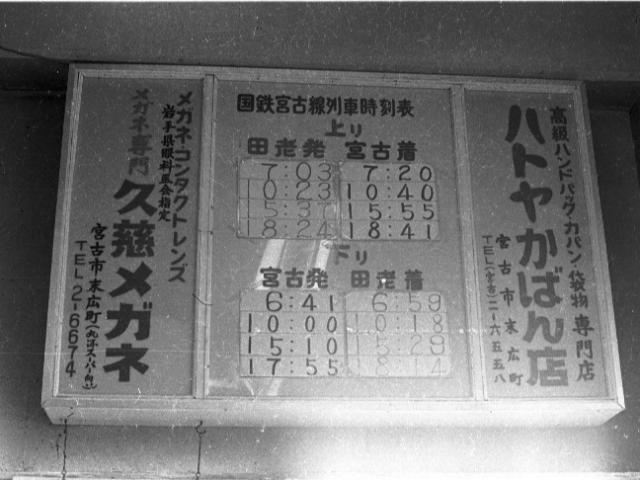 国鉄宮古線列車時刻表
上り
田老発 宮古着
7:03 7:20
10:23 10:40
15:37 15:55
18:24 18:41
下り
宮古発 田老着
6:41 6:59
10:00 10:18
15:10 15:29
17:55 18:14
高級ハンドバッグ・カバン・袋物専門店
ハトヤかばん店
宮古市末広町
TEL(宮古)二-六五五八
メガネコンタクトレンズ
岩手県眼科医会指定
メガネ専門 久慈メガネ
宮古市末広町
TEL 2-6674